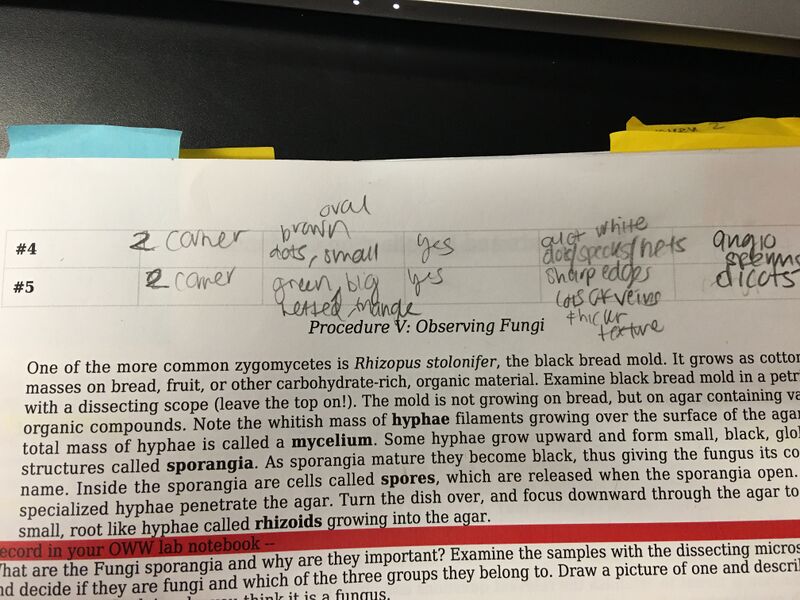 oval
#4 2 corner brown dots, small yes alot white dots/specks/nets angio sperms
#5 2 corner green, big netted, triangle yes sharp edges lots of veins thicker texture dicots
Procedure V: Observing Fungi
One of the more common zygomycetes is Rhizopus stolonifer, the black bread mold. It grows as cotton
masses on bread, fruit, or other carbohydrate-rich, organic material. Examine black bread mold in a petri
with a dissecting scope (leave the top on!). The mold is not growing on bread, but on agar containing va
organic compounds. Note the whitish mass of hyphae filaments growing over the surface of the agar
total mass of hyphae is called a mycelium. Some hyphae grow upward and form small, black, glo
structures called sporangia. As sporangia mature they become black, thus giving the fungus its co
name. Inside the sporangia are cells called spores, which are released when the sporangia open.
specialized hyphae penetrate the agar. Turn the dish over, and focus downward through the agar to
small, root like hyphae called rhizoids growing into the agar.
ecord in your OWW lab notebook --
What are the Fungi sporangia and why are they important? Examine the samples with the dissecting micros
nd decide if they are fungi and which of the three groups they belong to. Draw a picture of one and describ
you think it is a fungus.